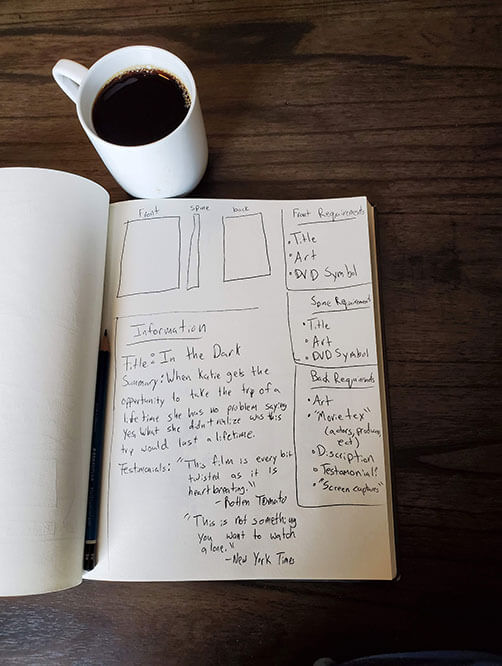 Front spine back
Information
Title: In the Dark
Summary: When Katie gets the
opportunity to take the trip of a
lifetime she has no problem saying
yes, what she didn't realize was this
trip would last a lifetime.
Testmonials: "This film is every bit
twisted as it is
heartbreaking."
- Rotten Tomato
"This is not something
you want to watch
alone."
- New York Times
Front Requirements
• Title
• Art
• DVD Symbol
Spine Requirement
• Title
• Art
• DVD Symbol
Back Requirments
• Art
• "Movie tex"
(actors, producer,
ect)
• Discription
• Testamonials
• "Screen captures"